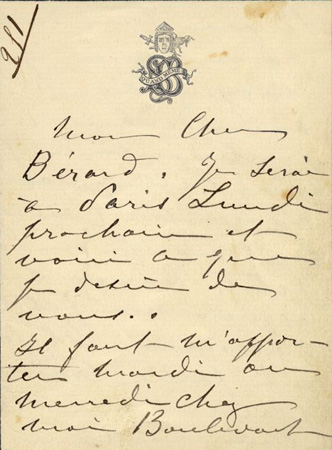 211
QUAND MÊME
SB
Mon Cher
Bérard. Je serai
à Paris Lundi
prochain et
voici ce que
je désire de
vous..
Il faut m'appor-
ter mardi ou
mercredi chez
moi Boulevart